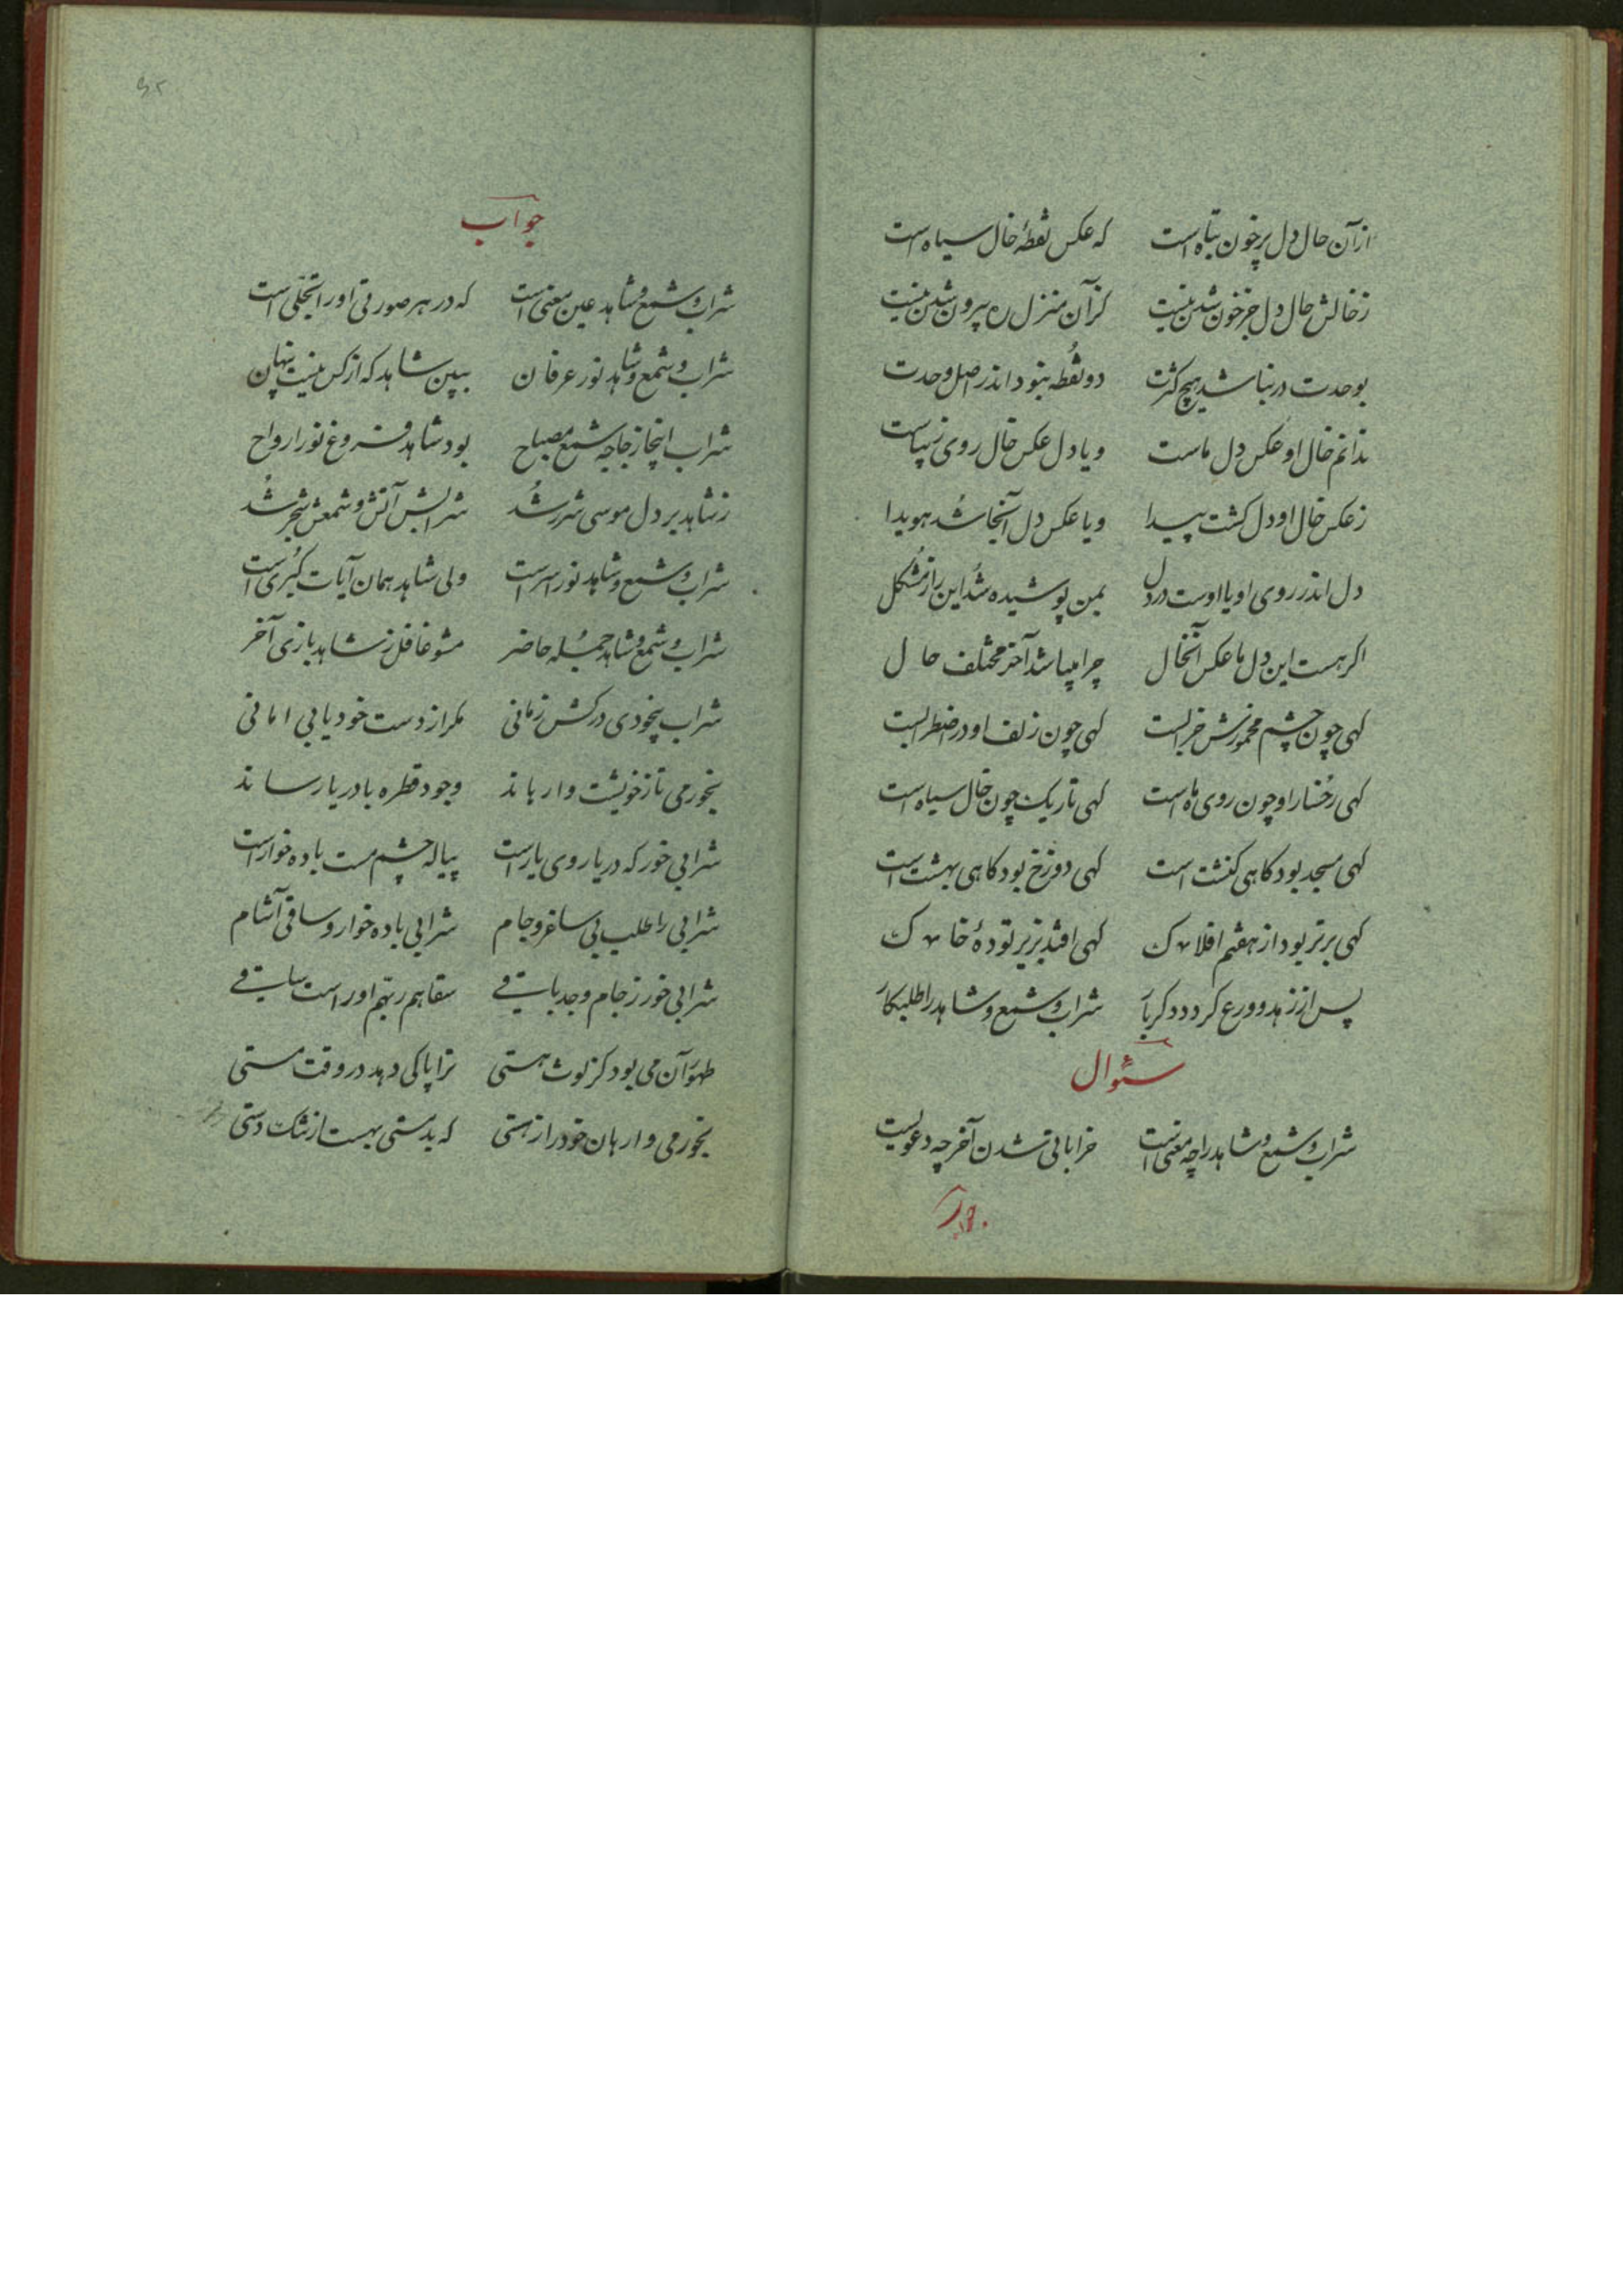 ازآن حال دل پرخون تباه است که عکس نقطهٔ خال سیاه است
زخالش حال دل جز خون شدن نیست کزآن منزل ره بیرون شدن نیست
بوحدت در نباشد هیچ کثرت دو نقطه نبود اندر اصل وحدت
ندانم خال او عکس دل ماست ویا دل عکس خال روی زیباست
زعکس خال او دل کشت پیدا ویا عکس دل آنجا شد هویدا
دل اندر روی او یا اوست در دل بمن پوشیده شد این راز مشکل
اکر هست این دل ما عکس آنخال چرا میباشد آخر مختلف حال
کهی چون چشم مخمورش خرابست کهی چون زلف او در اضطرابست
کهی رخسار او چون روی ماه است کهی تاریک چون خال سیاه است
کهی مسجد بود کاهی کنشت است کهی دوزخ بود کاهی بهشت است
کهی برتر بود از هفتم افلاک کهی افتد بزیر تودهٔ خاک
پس از زهد و ورع کردد دکر بار شراب و شمع و شاهد را طلبکار
سئوال
شراب و شمع و شاهد را چه معنی است خراباتی شدن آخر چه دعویست
جواب
جواب
شراب و شمع و شاهد عین معنی است که در هر صورتی اورا تجلی است
شراب و شمع و شاهد نور عرفان ببین شاهد که از کس نیست پنهان
شراب اینجا زجاجه شمع مصباح بود شاهد فروغ نور ارواح
زشاهد بر دل موسی شرر شد شرابش آتش و شمعش شجر شد
شراب و شمع و شاهد نور اسراست ولی شاهد همان آیات کبری است
شراب و شمع و شاهد جمله حاضر مشو غافل زشاهد بازی آخر
شراب بیخودی درکش زمانی مکر از دست خود یابی امانی
بخور می تا زخویشت وارهاند وجود قطره با دریا رساند
شرابی خور که دریا روی یار است پیاله چشم مست باده خوار است
شرابی را طلب بی ساغر و جام شرابی باده خوار و ساقی آشام
شرابی خور زجام وجه باقی سقاهم ربهم اوراست ساقی
طهور آن می بود کز لوث هستی ترا پاکی دهد در وقت مستی
بخور می وارهان خود را ز هستی که بدمستی بهست از تنک دستی